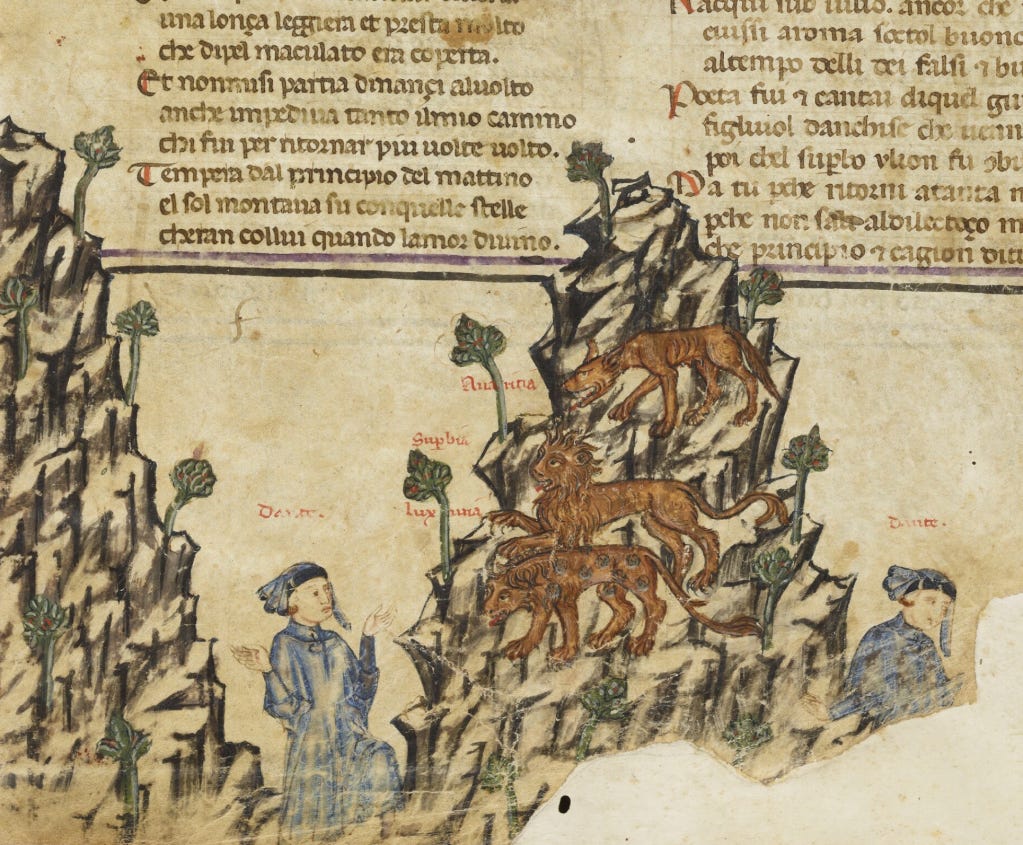 una lonça leggiera et presta molto
che dipel maculato era coperta.
Et nonmisi partia dinançi aluolto
anche impediua tanto ilmio camino
chi fui per ritornar piu uolte uolto.
Tempera dal principio del mattino
el sol montaua su conquelle stelle
cheran collui quando lamor diuino.
Nacqui sub iulio. ancor che
euissi aroma soctol buono
altempo delli dei falsi ⁊ bu
Poeta fui ⁊ cantai diquel giu
figluiol danchise che uenn
poi chel supbo ylion fu ꝯbu
Ma tu pche ritorni atanta n
pche non sali aldilectoço m
che principio ⁊ cagion ditt
Auaritia
Supbia
Luxuria
Dante.
dante.